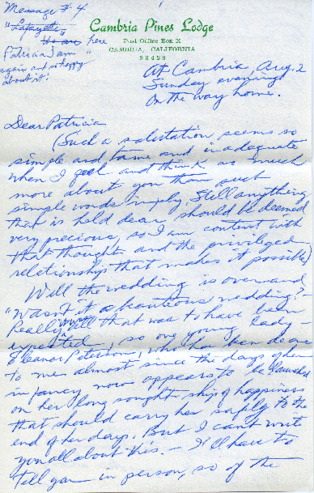 Message # 4
"Lafayette,
here
Patricia I am
again and so happy
about it!
Cambria Pines Lodge
Post Office Box H
CAMBRIA, CALIFORNIA
93428
At Cambria Aug. 2
Sunday evening
On the way home.
Dear Patricia
(Such a salutation seems so
simple and tame and inadequate
when I feel and think so much
more about you than such
simple words imply. Still anything
that is held dear should be deemed
very precious so I am content with
that thought and the privileged
relationship that makes it possible)
Well the wedding is over and
"Wasn't it a beauteous wedding?"
Really all that was to have been
expected, so one young lady -
Eleanor Peterson, who has been dear
to me almost since the days of her
infancy now appears to be launched
on her long sought ship of happiness
that should carry her safely to the
end of her days. But I can't write
you all about this. - I'll have to
tell you in person, so of the